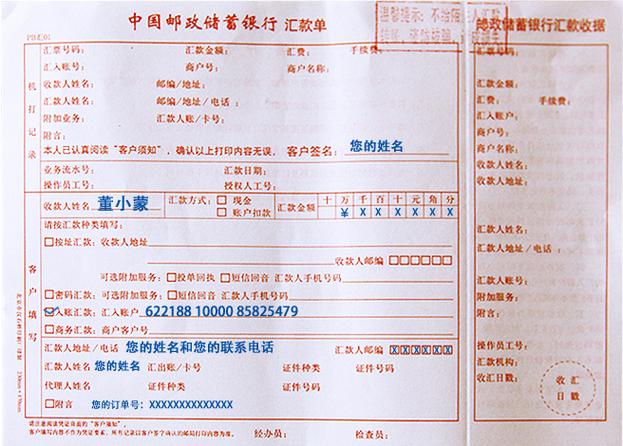 中国邮政储蓄银行 汇款单
邮政储蓄银行汇款收据
温馨提示：不给陌生人汇款
汇票号码： 汇款金额： 汇费： 手续费：
汇入账号： 商户号： 商户名称：
收款人姓名： 邮编/地址：
汇款人姓名： 邮编/地址/电话：
附加业务： 汇款人账/卡号：
附言：
本人已认真阅读“客户须知”，确认以上打印内容无误。 客户签名： 您的姓名
业务流水号： 汇款日期：
操作员工号： 授权人工号：
机打记录
收款人姓名 董小蒙 汇款方式： 现金 账户扣款 汇款金额 十 万 千 百 十 元 角 分
¥ X X X X X X
请按汇款种类填写：
按址汇款：收款人地址
收款人邮编
可选附加服务： 投单回执 短信回音 汇款人手机号码
密码汇款：可选附加服务： 短信回音 汇款人手机号码
入账汇款：汇入账户 622188 10000 85825479
商务汇款：商户客户号
汇款人地址/电话 您的姓名和您的联系电话 汇款人邮编 XXXXXX
汇款人姓名 您的姓名 汇出账/卡号 证件种类 证件号码
代理人姓名 证件种类 证件号码
附言 您的订单号：XXXXXXXXXXXXXX
客户填写
请注意阅读凭证背面的“客户须知”。
客户填写内容不作为凭证要素，所有记录以客户签字确认的邮局打印内容为准。
经办员： 检查员：
汇票号码：
汇款金额：
汇费： 手续费：
汇入账户：
商户号：
商户名称：
收款人姓名：
收款人地址：
汇款人姓名：
汇款人地址/电话：
汇款人账号：
附加服务：
附言：
操作员工号：
汇款机构：
收汇日戳：
收汇
日戳